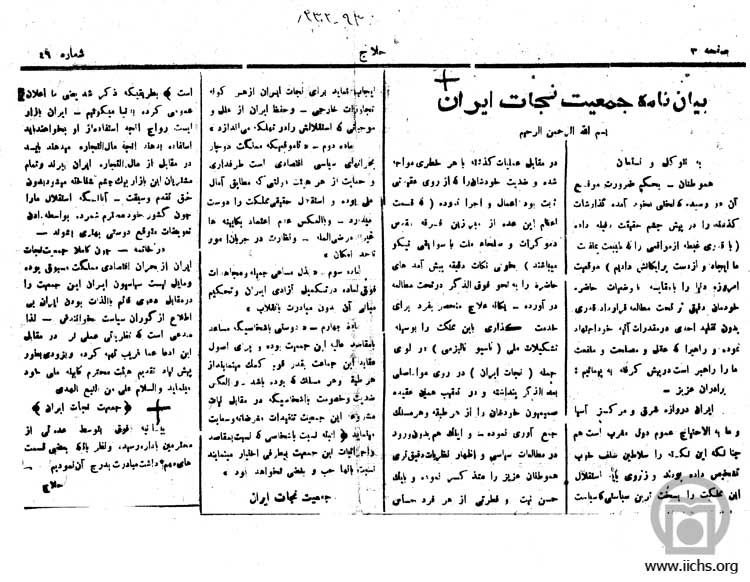 ۱۳۲-۹۳۰
صفحه ۳
حلاج
شماره ۴۹
بیان نامه جمعیت نجات ایران
بسم الله الرحمن الرحیم
به توکل و استعان
هموطنان – بحکم ضرورت موقع
گذشته را در پیش چشم حقیقت
ما ایجاد و از دست برایگانش دادیم ) موقعیت
امروزه دنیا را بمقایسه با وضعیات حاضره
خودمان دقیق تر تحت مطالعه قرار داده قدری
بدون تقلید احدی در مقدرات آتیه خود اجتهاد
نموده و راهی را که عقل و مصلحت و منفعت
ما را رهبر است در پیش گرفته به پوئیم :
برادران عزیز –
ایران دروازه شرق و مرکزی آسیا
و ما به الاحتیاج عموم دول مغرب است هم
چنانکه این نکته را سلاطین سلف خوب
تشخیص داده بودند و از روی
این مملکت را بسخت ترین سیاستی که سیاست
در مقابل عملیات گذشته با هر خطری مواجه
شده و ضدیت خودشان را که از روی عقیدتی
ثابت بود اعمال و اجرا نموده ( که قسمت
اعظم این عده از مبرزین فرقه مقدس
دموکرات و صلحاء ملت با سوابقی نیکو
میباشند ) بعضی نکات دقیقه پیش آمد های
حاضره را به نحو فوق الذکر تحت مطالعه
در آورده – یگانه علاج منحصر بفرد برای
خدمت گذاری باین مملکت را بوسیله
تشکیلات ملی ( ناسیو نالیزمی ) در لوای
جمله ( نجات ایران ) در روی مواد اصلی
بعد الذکر پنداشته و در تعقیب همین عقیده
صمیمی خودمان را از هر طبقه و هر مسلک
جمع آوری نموده – و اینک هم بدون ورود
در مطالعات سیاسی و اظهار نظریات دقیق تری
هموطنان عزیز را متذکر نموده و با یک
حسن نیت و فطرتی از هر فرد حساس
ایجاب نماید برای نجات ایران از هر گونه
تجاوزات خارجی – و حفظ ایران از علل و
موجباتی که استقلالش را در تهلکه می اندازد »
ماده دوم – « تا موقعیکه مملکت دوچار
بحرانهای سیاسی اقتصادی است طرفداری
و حمایت از هر هیئت دولتی که مطابق آمال
ملی بوده و استقلال حقیقی مملکت را دوست
میدارد – و بالعکس عدم اعتماد بکابینه ها
غیر مرضی المله – و نظارت در جریان امور
تا حد امکان »
ماده سوم – « بذل مساعی جمیله و مجاهدات
فوق العاده در تکمیل آزادی ایران و تحکیم
مبانی آن بدون مبادرت بانقلاب »
ماده چهارم – « دوستی باشخاصیکه مساعد
بمقاصد عالیه این جمعیت بوده و برای اصول
عقاید این جماعت بقدر قوه کمک مینمایند از
هر طبقه و هر مسلک که بوده باشد – و بالعکس
ضدیت و خصومت باشخاصیکه در مقابل نیات
مشروعه این جمعیت تنقیدات مغرضانه و سعایت
مینمایند ( البته نسبت باشخاصی که نسبت بمقاصد
و اجرائیات این جمعیت بیطرفی اختیار مینمایند
نسبت بآنها حب و بغضی نخواهد بود »
جمعیت نجات ایران
است » بطریقیکه ذکر شد یعنی ما اعلان
عمومی کرده به دنیا میگوئیم – ایران بازار
ایست رواج البته استفاده از او بخواهند باید
استفاده بدهند البته مال التجاره میدهند باید
در مقابل از مال التجاره ایران ببرند و تمام
مشتریان این بازار بیک چشم شناخته میشوند بدون
حق تقدم و سبقت – آنانیکه استقلال ما را
چون کشور خود محترم شمرده بوسیله دادن
تعویضات متوقع دوستی بهاری بشوند –
در خاتمه – چون کاملا جمعیت نجات
ایران از بحران اقتصادی مملکت مسبوق بوده
و مایل نیست سیاسیون ایران این جمعیت را
در مقابل دعوی قائم بالذات بودن ایران بی
اطلاع از گوران سیاست خود
مدعی است که نظریاتی عملی تر در مقابل
این ادعا عما قریب تهیه کرده و بزودی بطور
پیش نهاد تقدیم هیئت محترم کابینه ملی خود
مینماید والسلام علی من اتبع الهدی
« جمعیت نجات ایران »
بیانیه فوق بتوسط عده ئی از
محترمین باداره رسید، و نظر باینکه بعضی قسمت
های مهم داشت مبادرت بدرج آن نمودیم
حلاج
www.iichs.org